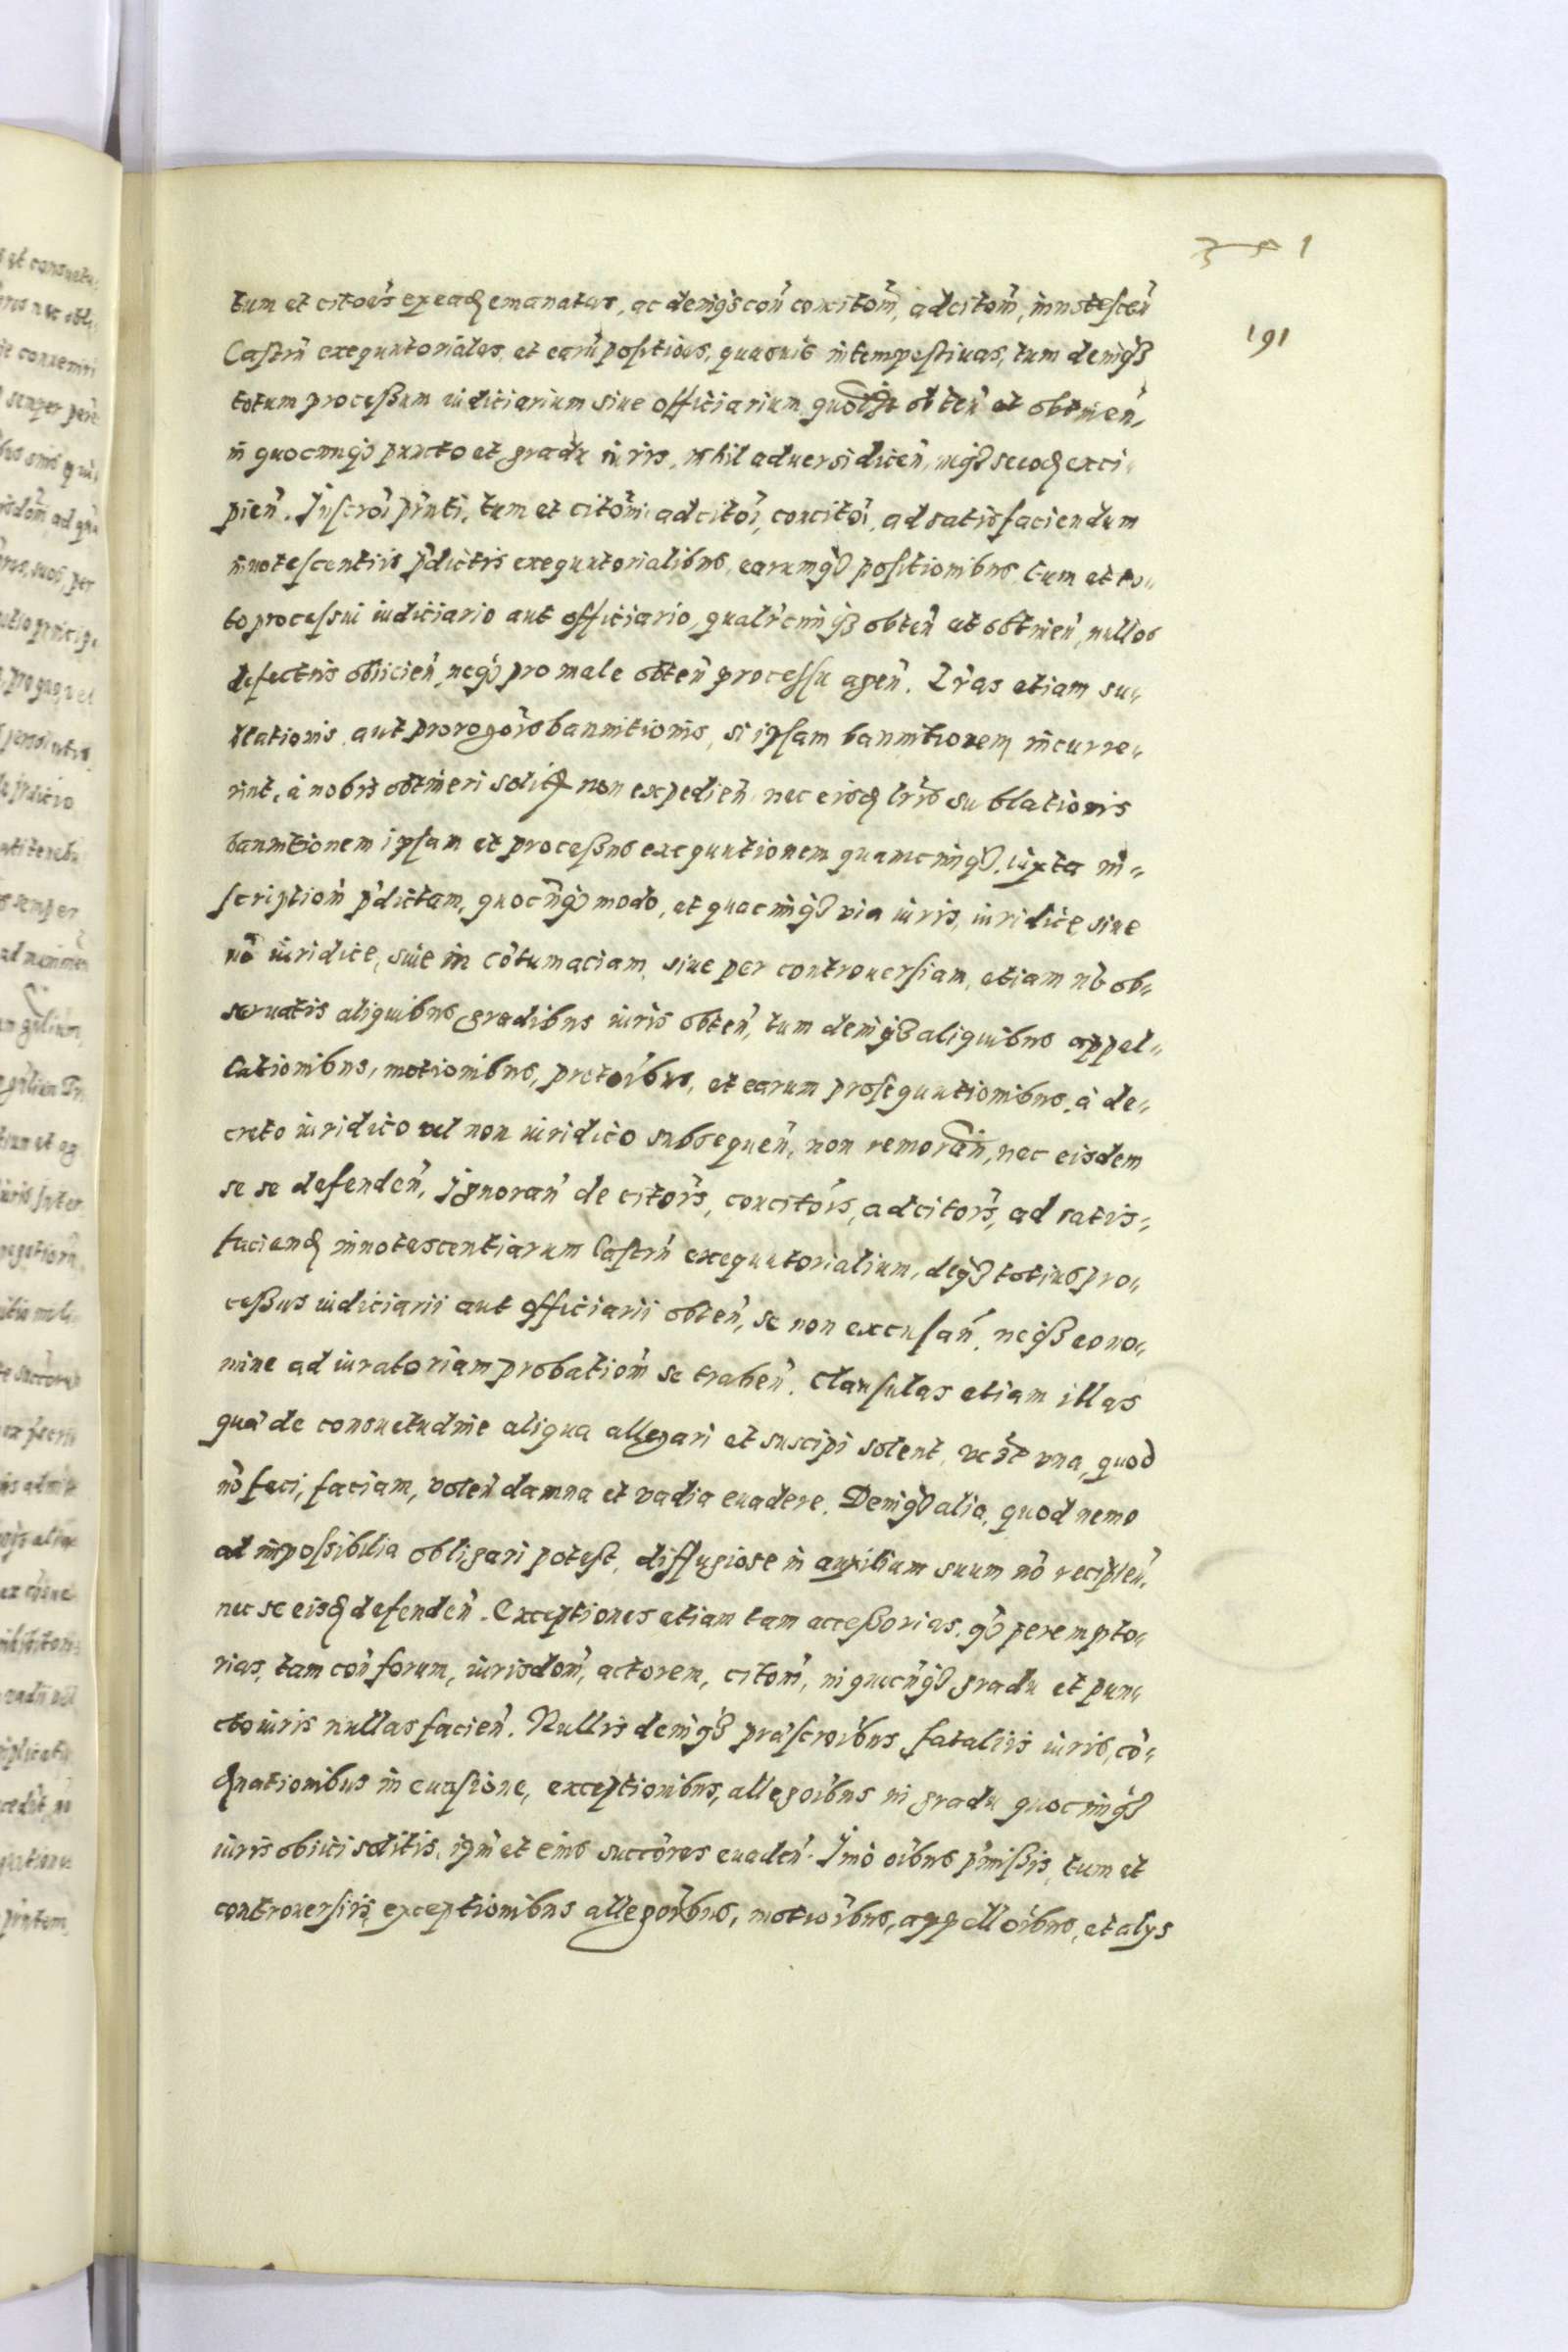 351
191
tum et citoēs ex eadq emanatas, ac deniqȝ con̄ concitom̄, adcitom̄, innotescen̄
Castrn̄ exequutoriales, et earū positioēs, quasuis intempestiuas, tum deniqȝ
totum processum iudiciarium siue officiarium obten̄ et obtinen̄,
in quocunqȝ puncto et gradu iuris, nihil aduersi dicen̄, neqȝ exci„
pien̄. Inscrōi pn̄ti, tum et citōni adcitōi, concitōi, ad satisfaciendum
innotescentiis p̄dictis exequutorialibus, earumqȝ positionibus, tum et to„
to processui iudiciario aut officiario, qualr̄cunqȝ obten̄ et obtinen̄, nullos
defectus obiicien̄, neqȝ pro male obten̄ processu agen̄. Lr̄as etiam su„
blationis, aut prorogōis bannitionis, si ipsam bannitionem incurre„
rint, à nobis obtineri solitas non expedien̄ nec eisdq lr̄is sublationis
bannitionem ipsam et processus exequutionem quamcunqȝ, iuxta in„
scription̄ p̄dictam, quocn̄qȝ modo, et quacunqȝ via iuris, iuridice siue
nō iuridice, siue in cōtumaciam, siue per controuersiam, etiam nō ob„
seruatis aliquibus gradibus iuris obten̄, tum deniqȝ aliquibus appel„
lationibus, motionibus, protōibus, et earum prosequutionibus, à de„
creto iuridico vel non iuridico subsequen̄, non remoran̄, nec eisdem
se se defenden̄, Ignoran̄ de citōis, concitōis, adcitōis, ad satis„
faciendq innotescentiarum Castrn̄ exequutorialium, deqȝ totius pro„
cessus iudiciarii aut officiarii obten̄, se non excusan̄, neqȝ eo no„
mine ad iuratoriam probatiom̄ se trahen̄. Clausulas etiam illas
quæ de consuetudine aliqua allegari et suscipi solent, vna, quod
nō feci, faciam, volen̄ damna et vadia euadere. Deniqȝ alia, quod nemo
ad impossibilia obligari potest, diffugiose in auxilium suum nō recipien̄,
nec se eisdq defenden̄. Exceptiones etiam tam accessorias, qȝ perempto„
rias, tam con̄ forum, iurisdon̄, actorem, citom̄, in quocn̄qȝ gradu et pun„
cto iuris nullas facien̄. Nullis deniqȝ præscrōibus fataliis iuris, cō„
dēnationibus in euasione, exceptionibus, allegōibus in gradu quocunqȝ
iuris obiici solitis, ipse et eius succōres euaden̄. Imò oībus p̄missis, tum et
controuersiis exceptionibus allegōibus, motiōibus, appellōibus, et alijs